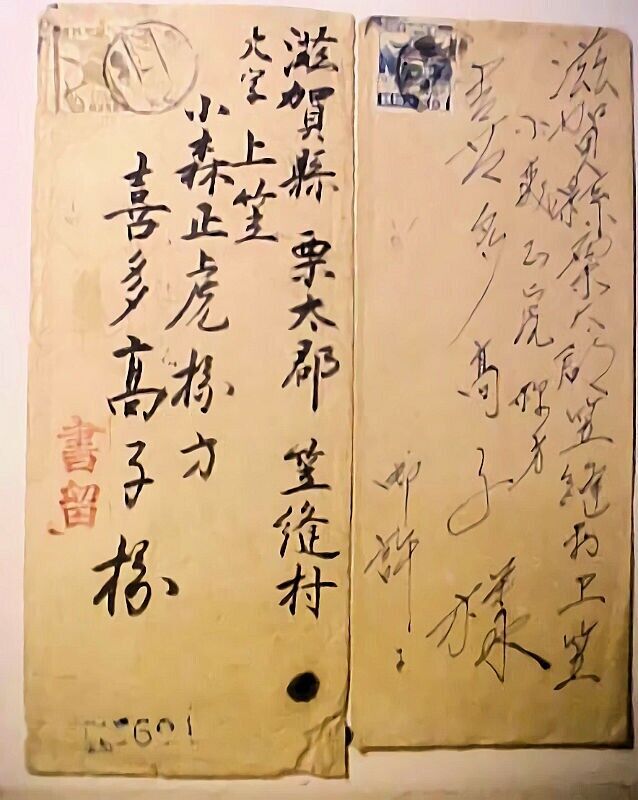 滋賀縣栗太郡笠縫村上笠
小森正虎様方
喜多高子様
御許
滋賀縣 栗太郡 笠縫村
大字 上笠
小森正虎様方
喜多高子様
書留